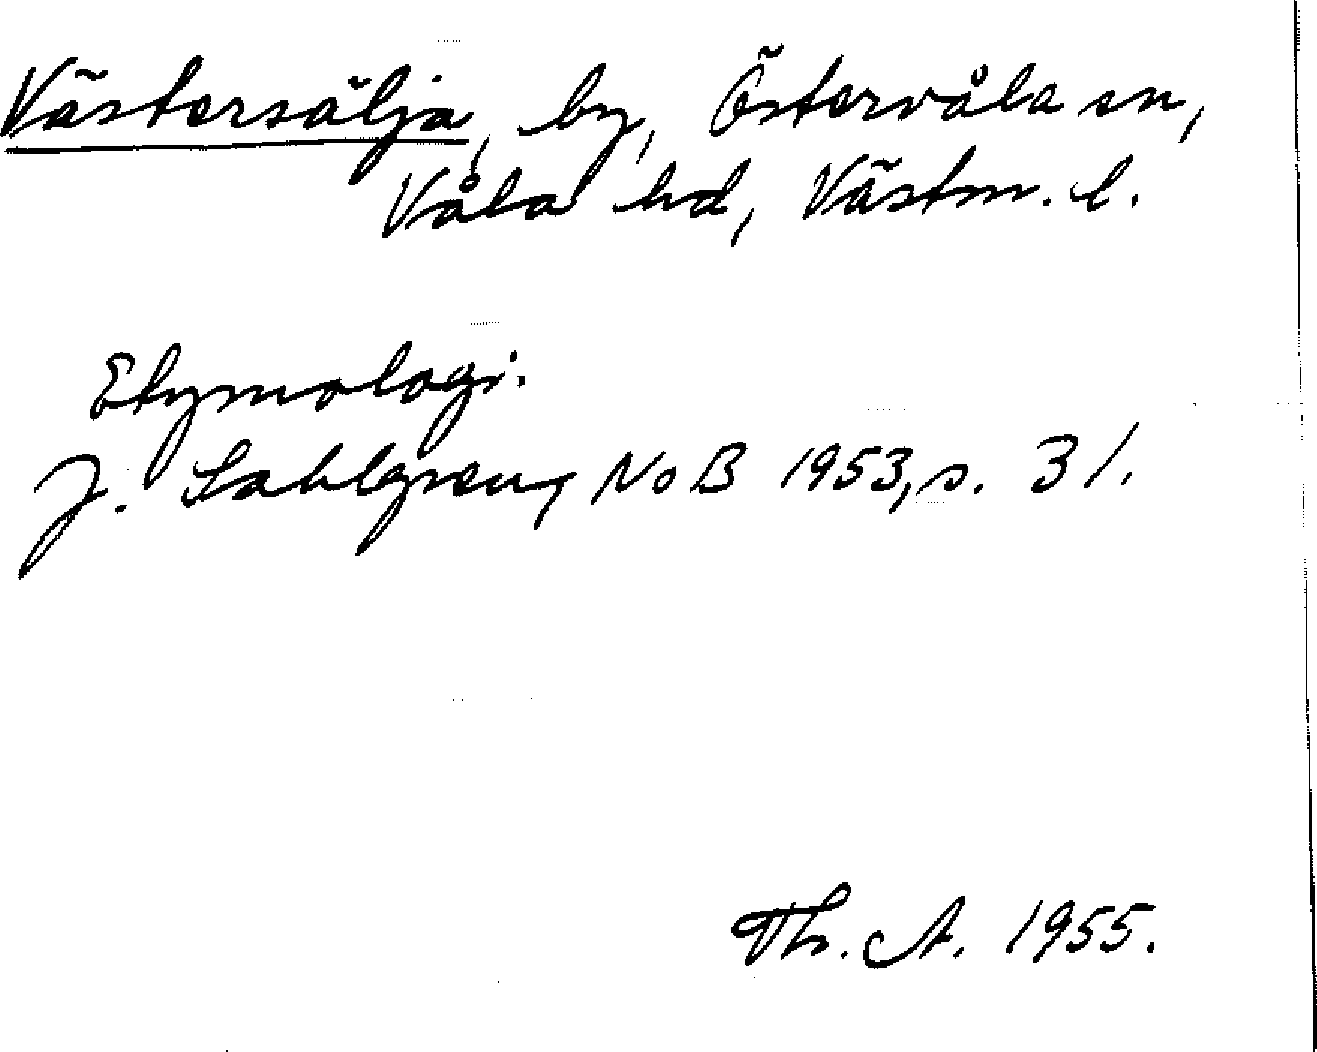 Västersälja, by, Östervåla sn,
Våla hd, Västm. l.
Etymologi.
J. Sahlgren, NoB 1953, s. 31.
Th. A. 1955.